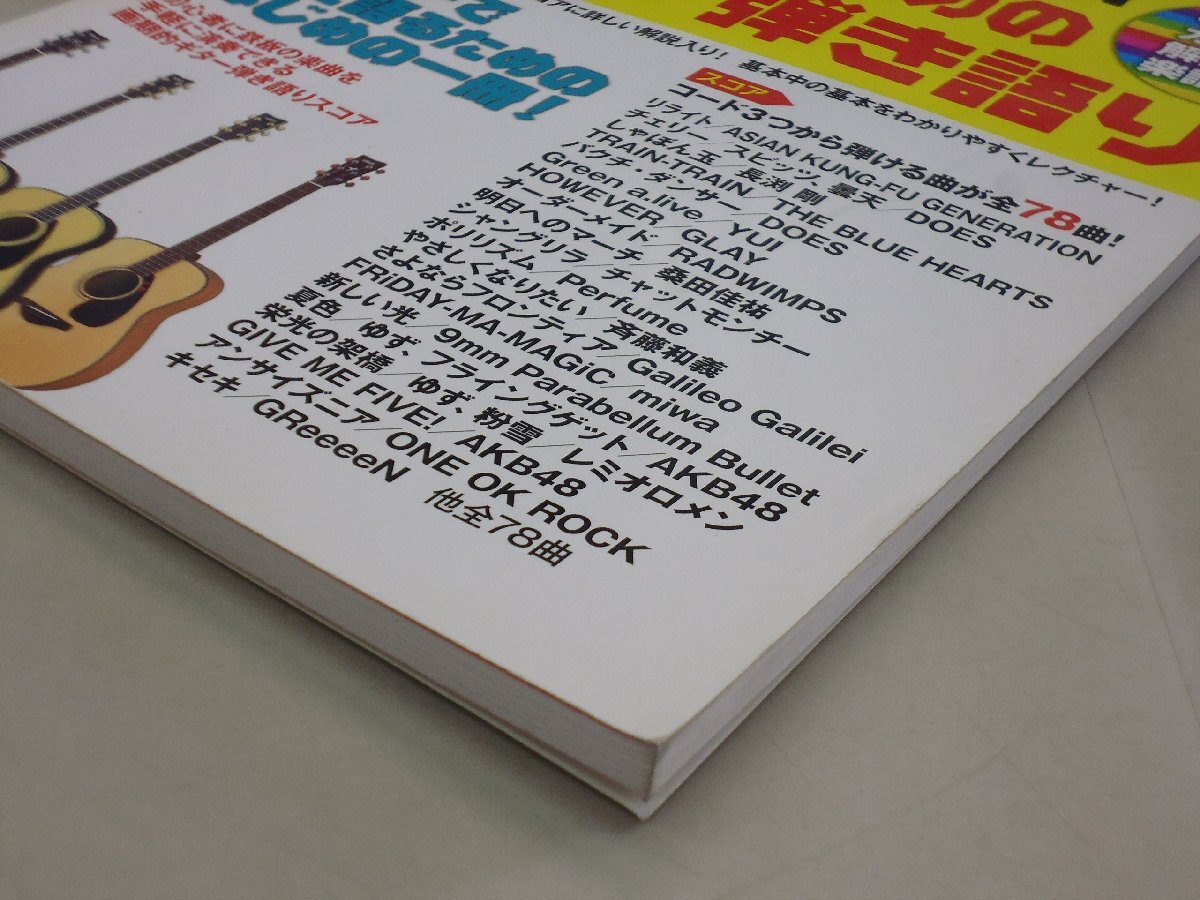 めの
弾き語り
に詳しい解説入り！ 基本中の基本をわかりやすくレクチャー！
で
めの一冊！
初心者に鉄板の楽曲を
手軽に演奏できる
画期的ギター弾き語りスコア
スコア
コード3つから弾ける曲が全78曲！
リライト／ASIAN KUNG-FU GENERATION
チェリー／スピッツ、曇天／DOES
しゃぼん玉／長渕 剛
TRAIN-TRAIN／THE BLUE HEARTS
バクチ・ダンサー／DOES
Green a.live／YUI
HOWEVER／GLAY
オーダーメイド／RADWIMPS
明日へのマーチ／桑田佳祐
シャングリラ／チャットモンチー
ポリリズム／Perfume
やさしくなりたい／斉藤和義
さよならフロンティア／Galileo Galilei
FRiDAY-MA-MAGiC／miwa
新しい光／9mm Parabellum Bullet
夏色／ゆず、フライングゲット／AKB48
栄光の架橋／ゆず、粉雪／レミオロメン
GIVE ME FIVE!／AKB48
アンサイズニア／ONE OK ROCK
キセキ／GReeeeN 他全78曲